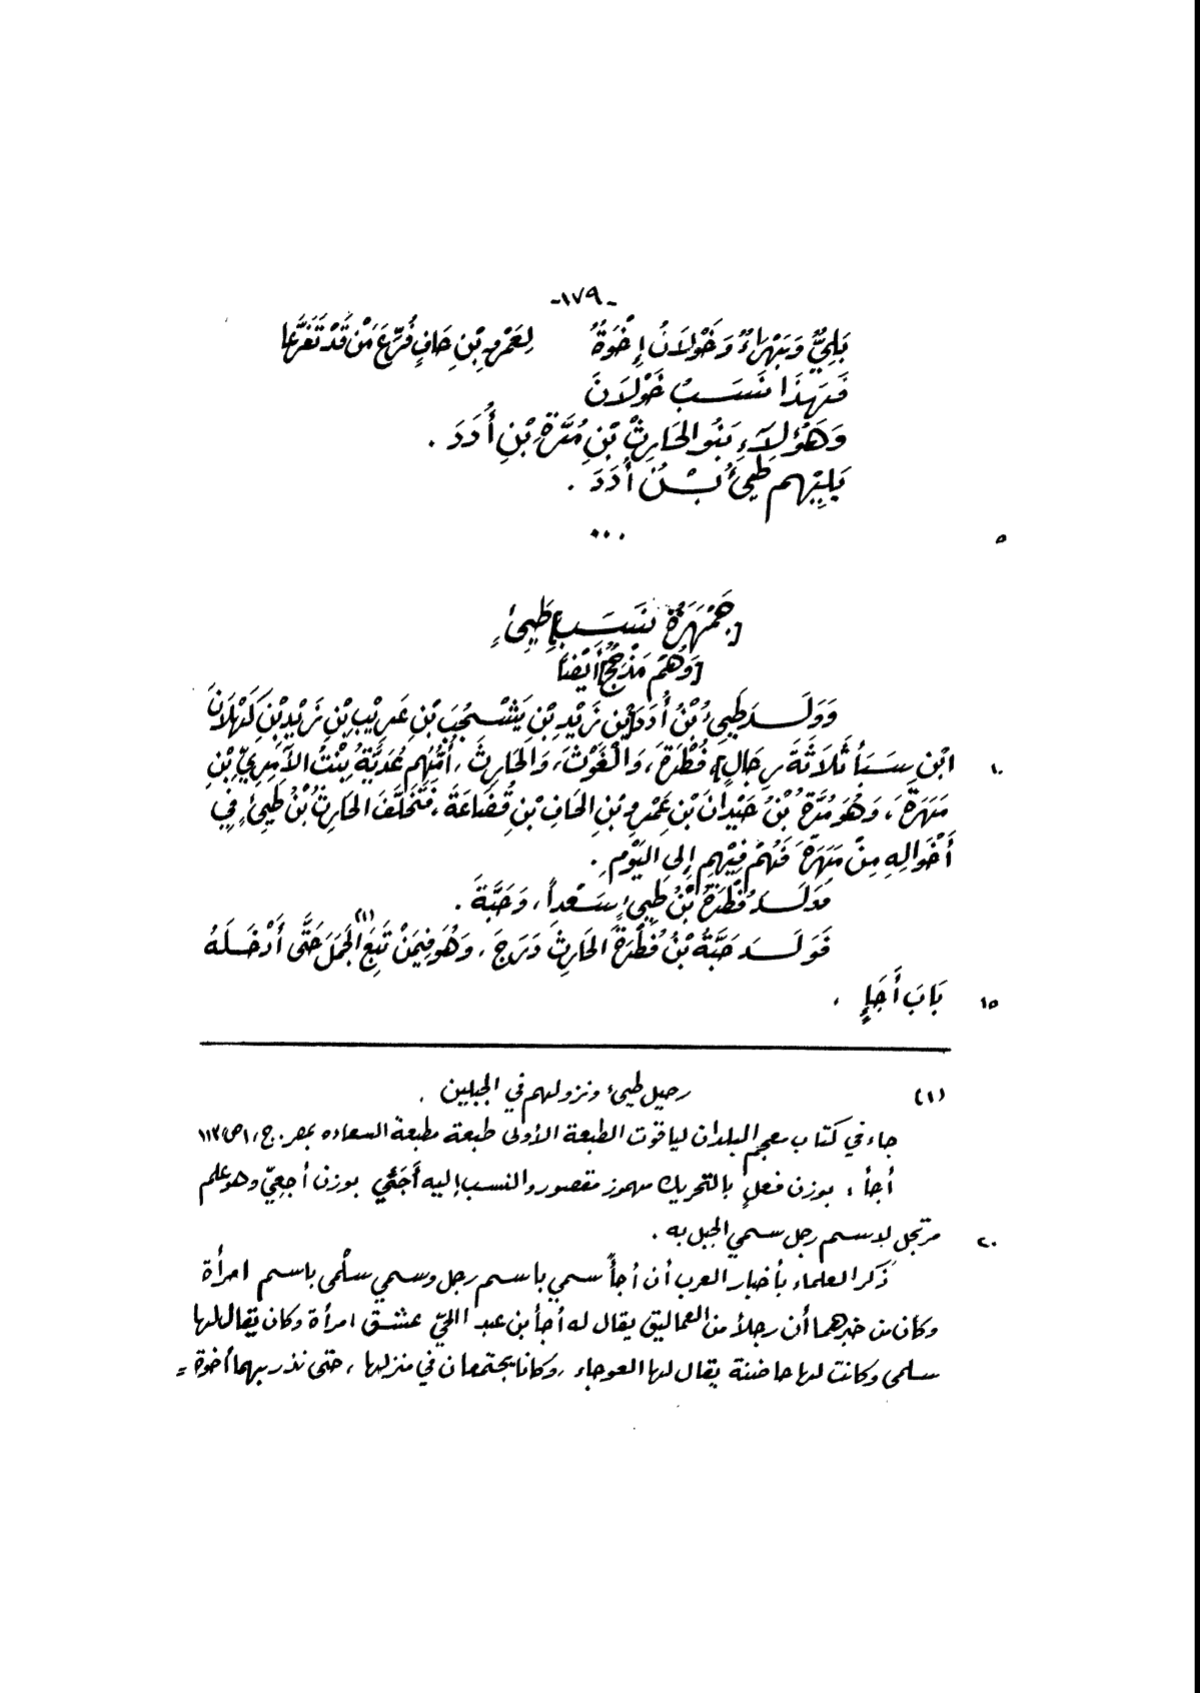 -١٧٩-
بَلِيٌّ وَبَهْرَاءٌ وَخَوْلَانُ إِخْوَةٌ لِعَمْرِو بْنِ حَافٍ فُرِّعَ مَنْ قَدْ تَفَرَّعَا
فَهَذَا نَسَبُ خَوْلَانَ
وَهَؤُلَاءِ بَنُو الحَارِثِ بْنِ مُرَّةَ بْنِ أُدَدَ .
يَلِيْهِم طَيِّئُ بْنُ أُدَدَ .
...
٥
[جَمْهَرَةُ نَسَبِ] طَيِّئٍ
[وَهُم مَذْحِجٌ] أَيْضًا
وَوَلَدَ طَيِّءُ بْنُ أُدَدَ [بْنِ زَيْدِ بْنِ يَشْجُبَ بْنِ عَرِيْبِ بْنِ زَيْدِ بْنِ كَهْلَانَ
١٠ ابْنِ سَبَأ ثَلَاثَةَ رِجَالٍ] فُطْرَةَ، وَالْغَوْثَ، وَالحَارِثَ، أُمُّهُم عُدَيَّةُ بِنْتُ الآمِرِيِّ بْنِ
مَهَرَةَ، وَهُوَ مُرَّةُ بْنُ حَيْدَانَ بْنِ عَمْرِو بْنِ الحَافِ بْنِ قُضَاعَةَ، فَتَخَلَّفَ الحَارِثُ بْنُ طَيِّئٍ فِي
أَخْوَالِهِ مِنْ مَهَرَةَ فَهُمْ فِيْهِم إِلى اليَوْمِ .
فَوَلَدَ فُطْرَةُ بْنُ طَيِّئٍ سَعْداً، وَحَيَّةَ .
فَوَلَدَ حَيَّةُ بْنُ فُطْرَةَ الحَارِثَ دَرَجَ، وَهُوَ فِيمَنْ تَبِعَ الجَمَلَ(١) حَتَّى أَدْخَلَهُ
١٥ بَابَ أَجَإٍ .
(١) رحيل طيئ ونزولهم في الجبلين .
جاء في كتاب معجم البلدان لياقوت الطبعة الأولى طبعة مطبعة السعاده بمصر. ج١، ص١١٣
أجأ : بوزن فعلٍ بالتحريك مهموز مقصور والنسب إليه أَجَئي بوزن أجعِيّ وهو علم
٢٠ مرتجل لاسم رجل سمي الجبل به .
ذَكر العلماء بأخبار العرب أن أجأً سمي باسم رجل وسمي سلْمى باسم امرأة
وكان من خبرهما أن رجلاً من العماليق يقال له أجأ بن عبد الحيّ عشق امرأة وكان يقال لها
سلمى وكانت لها حاضنة يقال لها العوجاء ، وكانا يجتمعان في منزلها ، حتى نذر بهما أخوة =